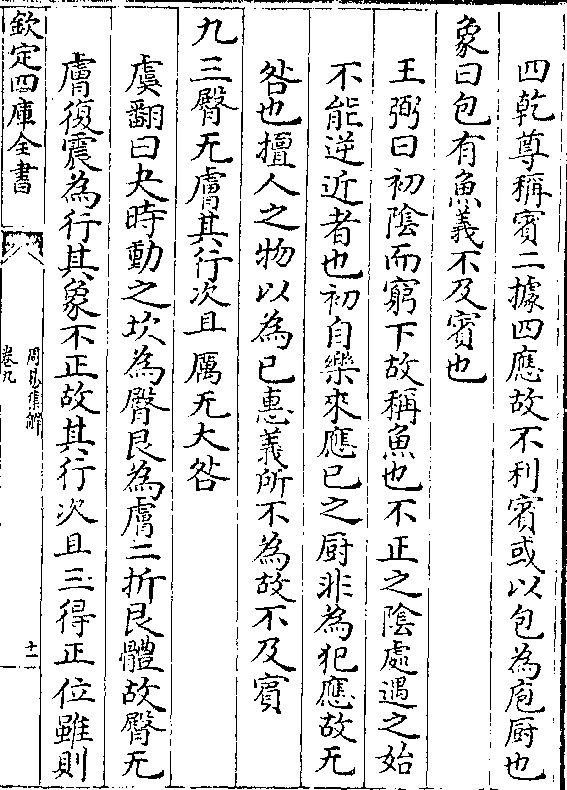 四乾尊稱賓二據四應故不利賓或以包為庖厨也
象曰包有魚義不及賓也
王弼曰初陰而窮下故稱魚也不正之陰處遇之始
不能逆近者也初自樂來應已之厨非為犯應故无
咎也擅人之物以為已惠義所不為故不及賓
九三臀无膚其行次且厲无大咎
虞翻曰夬時動之坎為臀艮為膚二折艮體故臀无
膚復震為行其象不正故其行次且三得正位雖則
欽定四庫全書
周易集解
卷九
十二